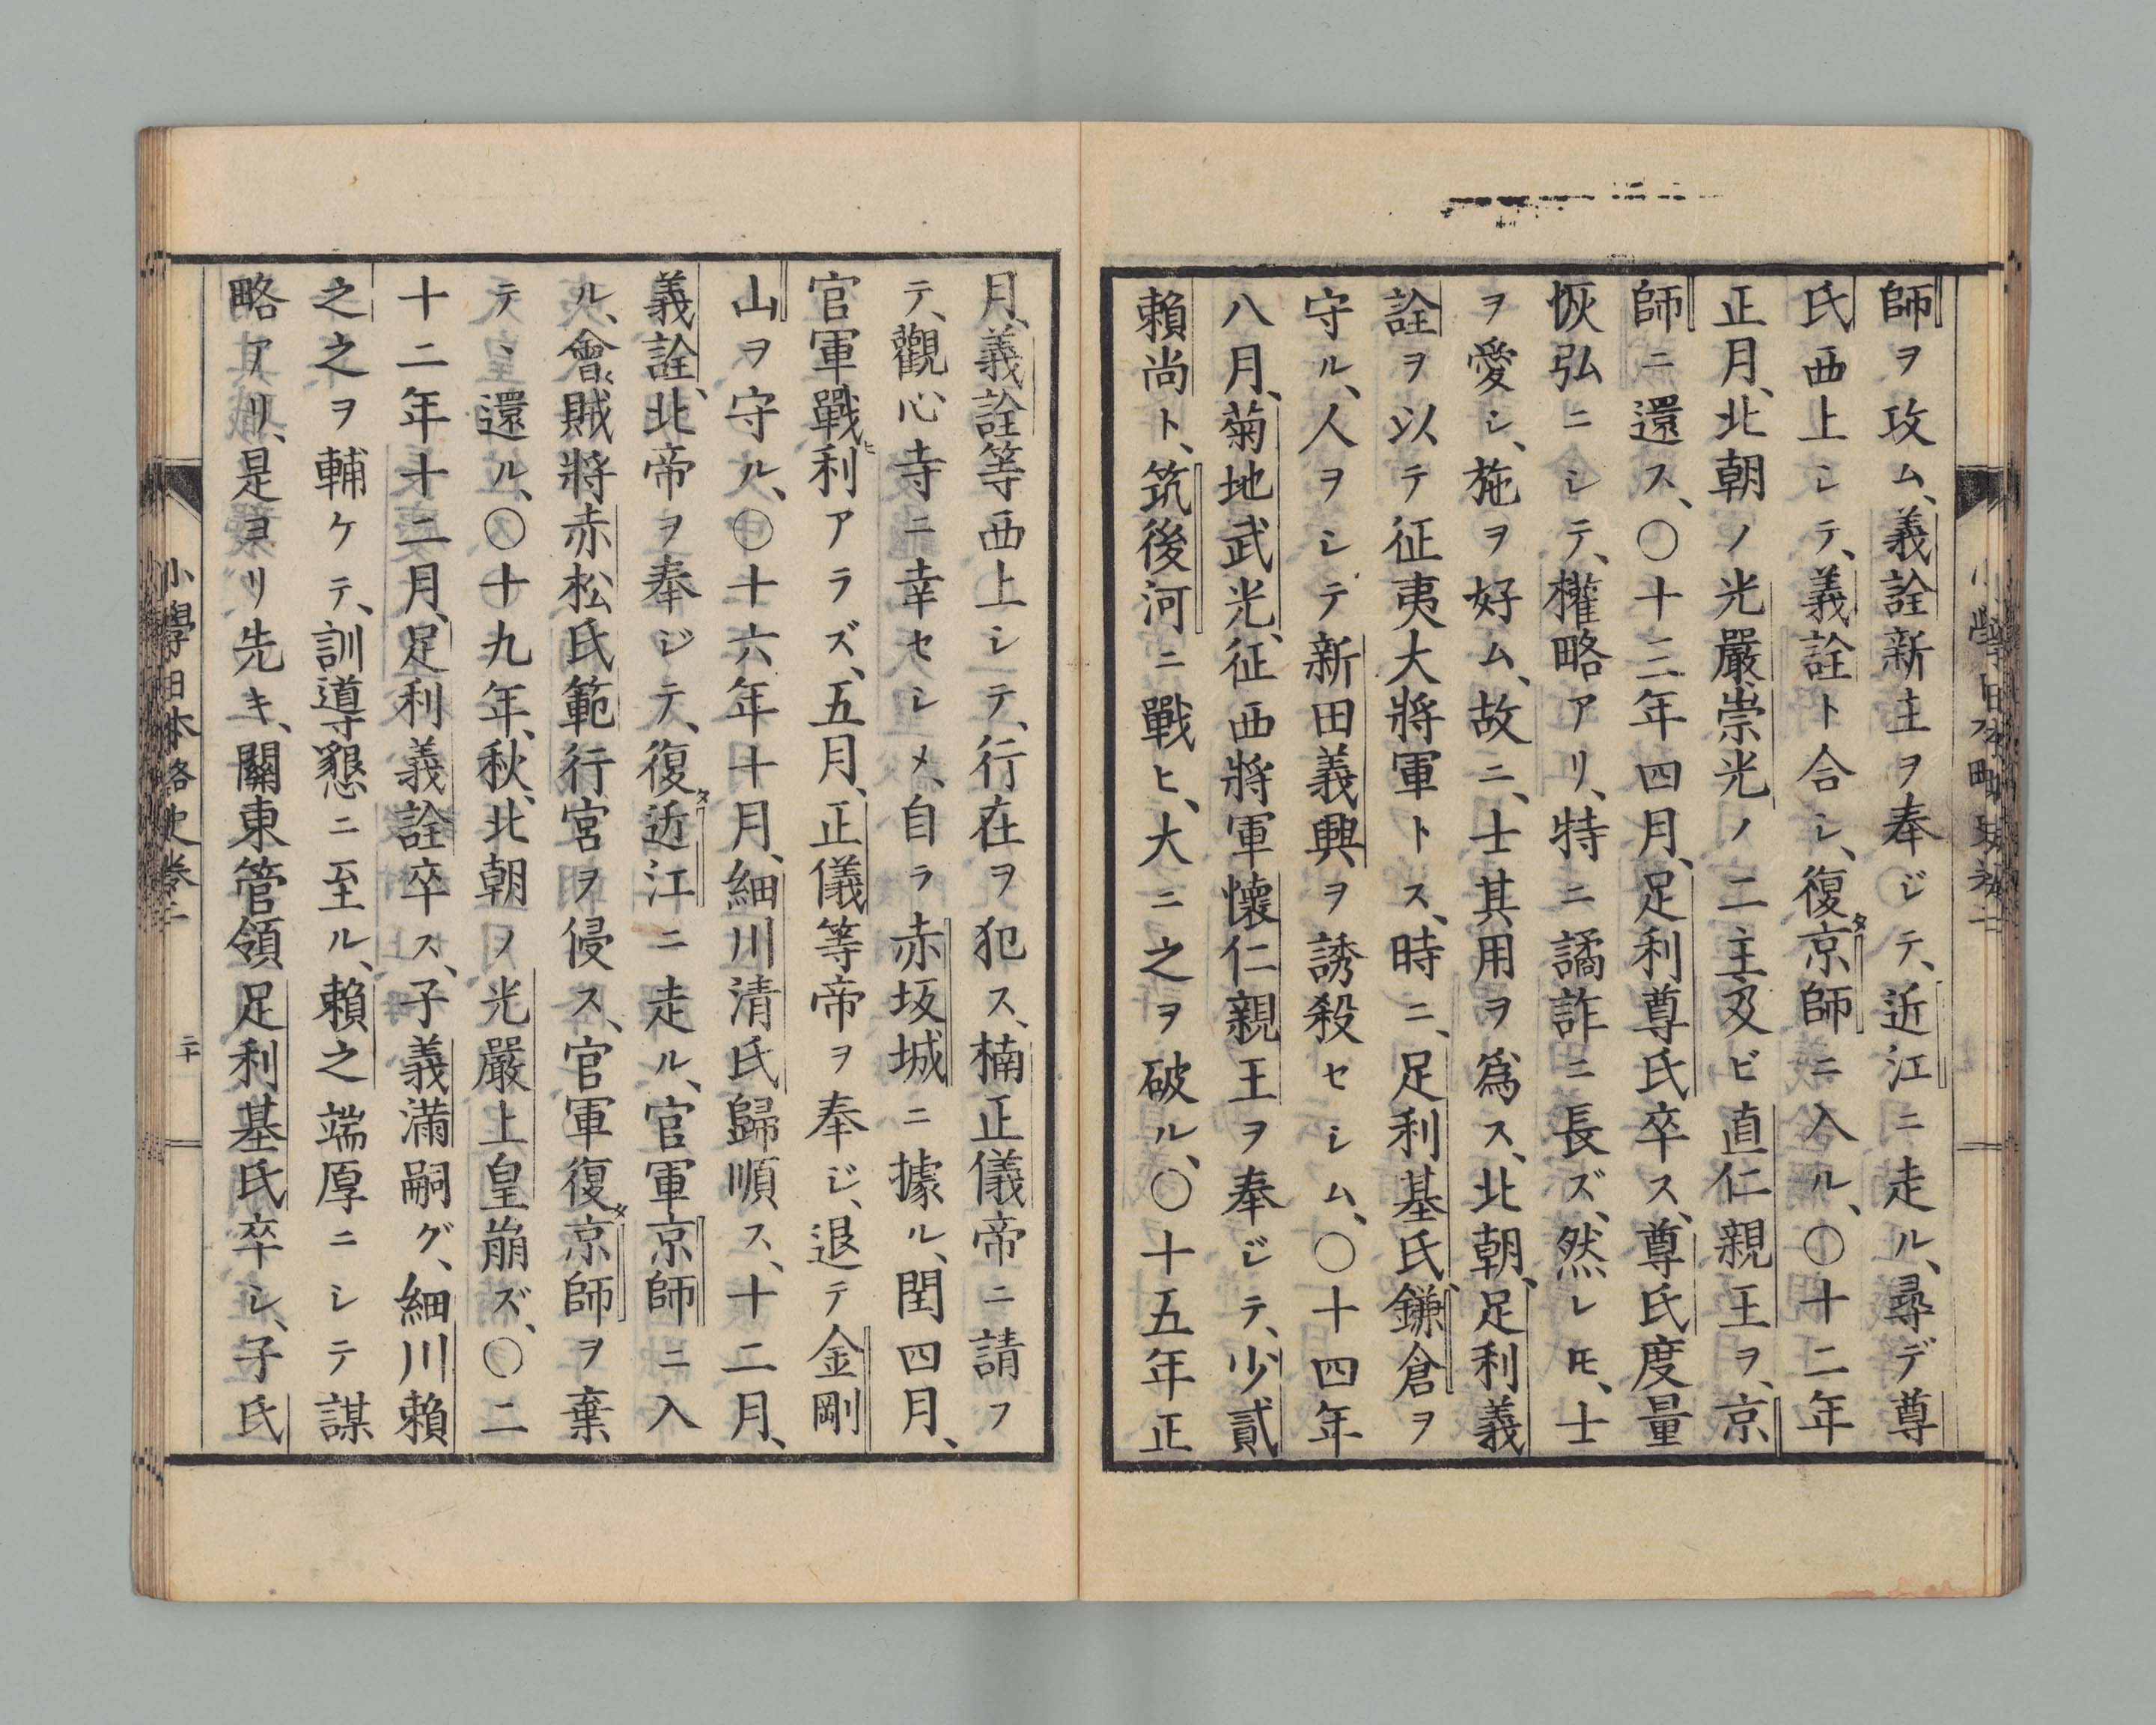 師ヲ攻ム、義詮新主ヲ奉ジテ、近江ニ走ル、尋デ尊
氏西上シテ、義詮ト合シ、復タ京師ニ入ル、〇十二年
正月、北朝ノ光嚴崇光ノ二主及ビ直仁親王ヲ、京
師ニ還ス、〇十三年四月、足利尊氏卒ス、尊氏度量
恢弘ニシテ、權略アリ、特ニ譎詐ニ長ズ、然レ𪜈、士
ヲ愛シ、施ヲ好ム、故ニ、士其用ヲ爲ス、北朝、足利義
詮ヲ以テ征夷大將軍トス、時ニ、足利基氏、鎌倉ヲ
守ル、人ヲシテ新田義興ヲ誘殺セシム、〇十四年
八月、菊地武光、征西將軍懷仁親王ヲ奉ジテ、少貳
賴尚ト、筑後河ニ戰ヒ、大ニ之ヲ破ル、〇十五年正
月、義詮等西上シテ、行在ヲ犯ス、楠正儀帝ニ請フ
テ、觀心寺ニ幸セシメ、自ラ赤坂城ニ據ル、閏四月、
官軍戰ヒ利アラズ、五月、正儀等帝ヲ奉ジ、退テ金剛
山ヲ守ル、〇十六年十月、細川清氏歸順ス、十二月、
義詮、北帝ヲ奉ジテ、復タ近江ニ走ル、官軍京師ニ入
ル、會〻賊將赤松氏範行宮ヲ侵ス、官軍復タ京師ヲ棄
テヽ還ル、〇十九年、秋、北朝ノ光嚴上皇崩ズ、〇二
十二年十二月、足利義詮卒ス、子義滿嗣グ、細川賴
之之ヲ輔ケテ、訓導懇ニ至ル、賴之端厚ニシテ謀
略アリ、是ヨリ先キ、關東管領足利基氏卒シ、子氏
小學日本略史卷二
二十